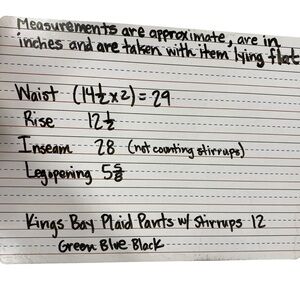 Measurements are approximate, are in
inches and are taken with item lying flat
Waist (14½x2)=29
Rise 12½
Inseam 28 (not counting stirrups)
Legopening 5⅝
Kings Bay Plaid Pants w/ Stirrups 12
Green Blue Black